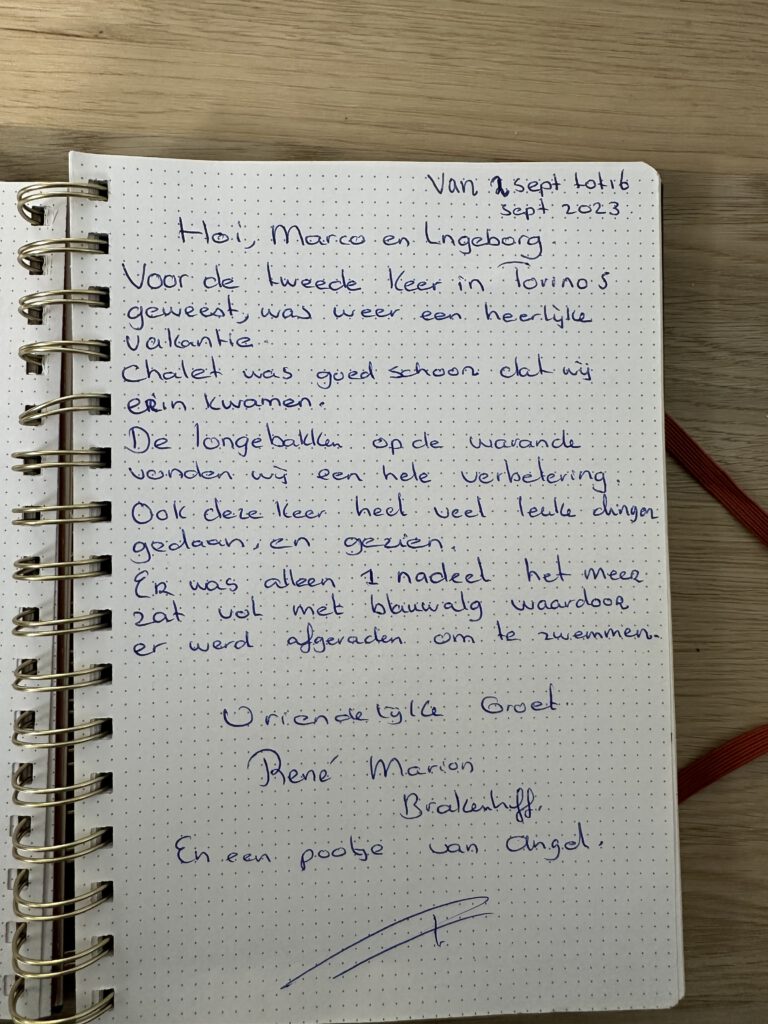 Van 2 sept tot 16
sept 2023.
Hoi, Marco en Ingeborg.
Voor de tweede keer in Torino's
geweest, was weer een heerlijke
vakantie.
Chalet was goed schoon dat wij
erin kwamen.
De longebakken op de warande
vonden wij een hele verbetering.
Ook deze keer heel veel leuke dingen
gedaan, en gezien.
Er was alleen 1 nadeel het meer
zat vol met blauwalg waardoor
er werd afgeraden om te zwemmen.
Vriendelijke Groet.
René Marion
Brakenhiff.
En een pootje van Angel.